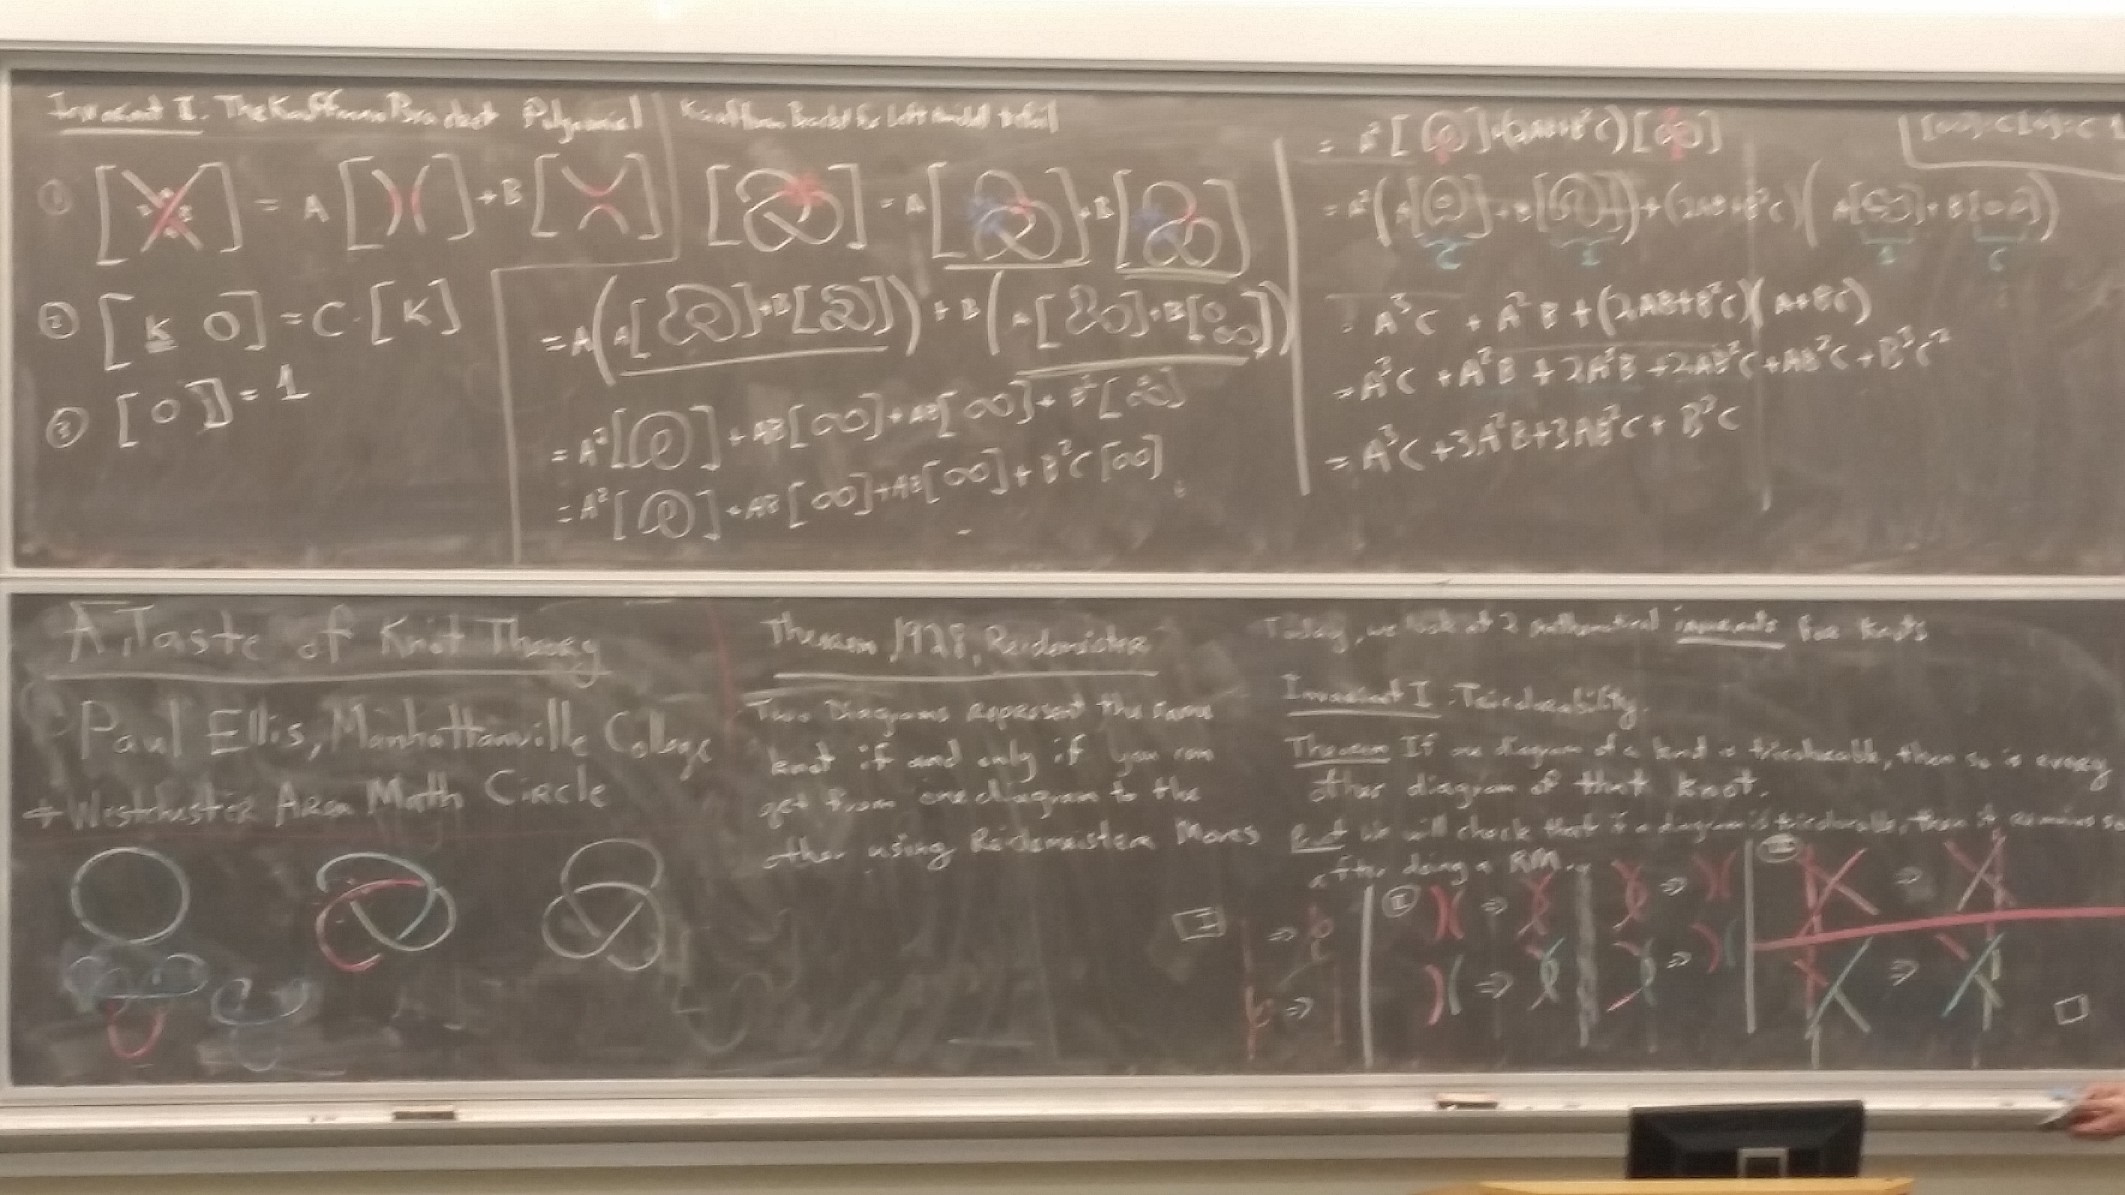 Invariant II: The Kauffman Bracket Polynomial
Kauffman Bracket for Left handed trefoil
① [ ] = A [ ] + B [ ]
② [K O] = C · [K]
③ [O] = 1
[ ] = A [ ] + B [ ]
= A(A[ ] + B[ ]) + B(A[ ] + B[ ])
= A²[ ] + AB[∞] + AB[∞] + B²[ ]
= A²[ ] + AB[∞] + AB[∞] + B²C[∞]
= A²[ ] + (2AB+B²C)[ ]
= A²(A[ ] + B[ ]) + (2AB+B²C)(A[ ] + B[ ])
C 1 1 C
= A³C + A²B + (2AB+B²C)(A+BC)
= A³C + A²B + 2A²B + 2AB²C + AB²C + B³C²
= A³C + 3A²B + 3AB²C + B³C
A Taste of Knot Theory
Paul Ellis, Manhattanville College
+ Westchester Area Math Circle
Theorem, 1928, Reidemeister
Two Diagrams represent the same
knot if and only if you can
get from one diagram to the
other using Reidemeister Moves
Today, we look at 2 mathematical invariants for knots
Invariant I: Tricolorability.
Theorem If one diagram of a knot is tricolorable, then so is every
other diagram of that knot.
Proof We will check that if a diagram is tricolorable, then it remains so
after doing a RM.
I
II ⇒ ⇒
⇒ ⇒
III ⇒
⇒